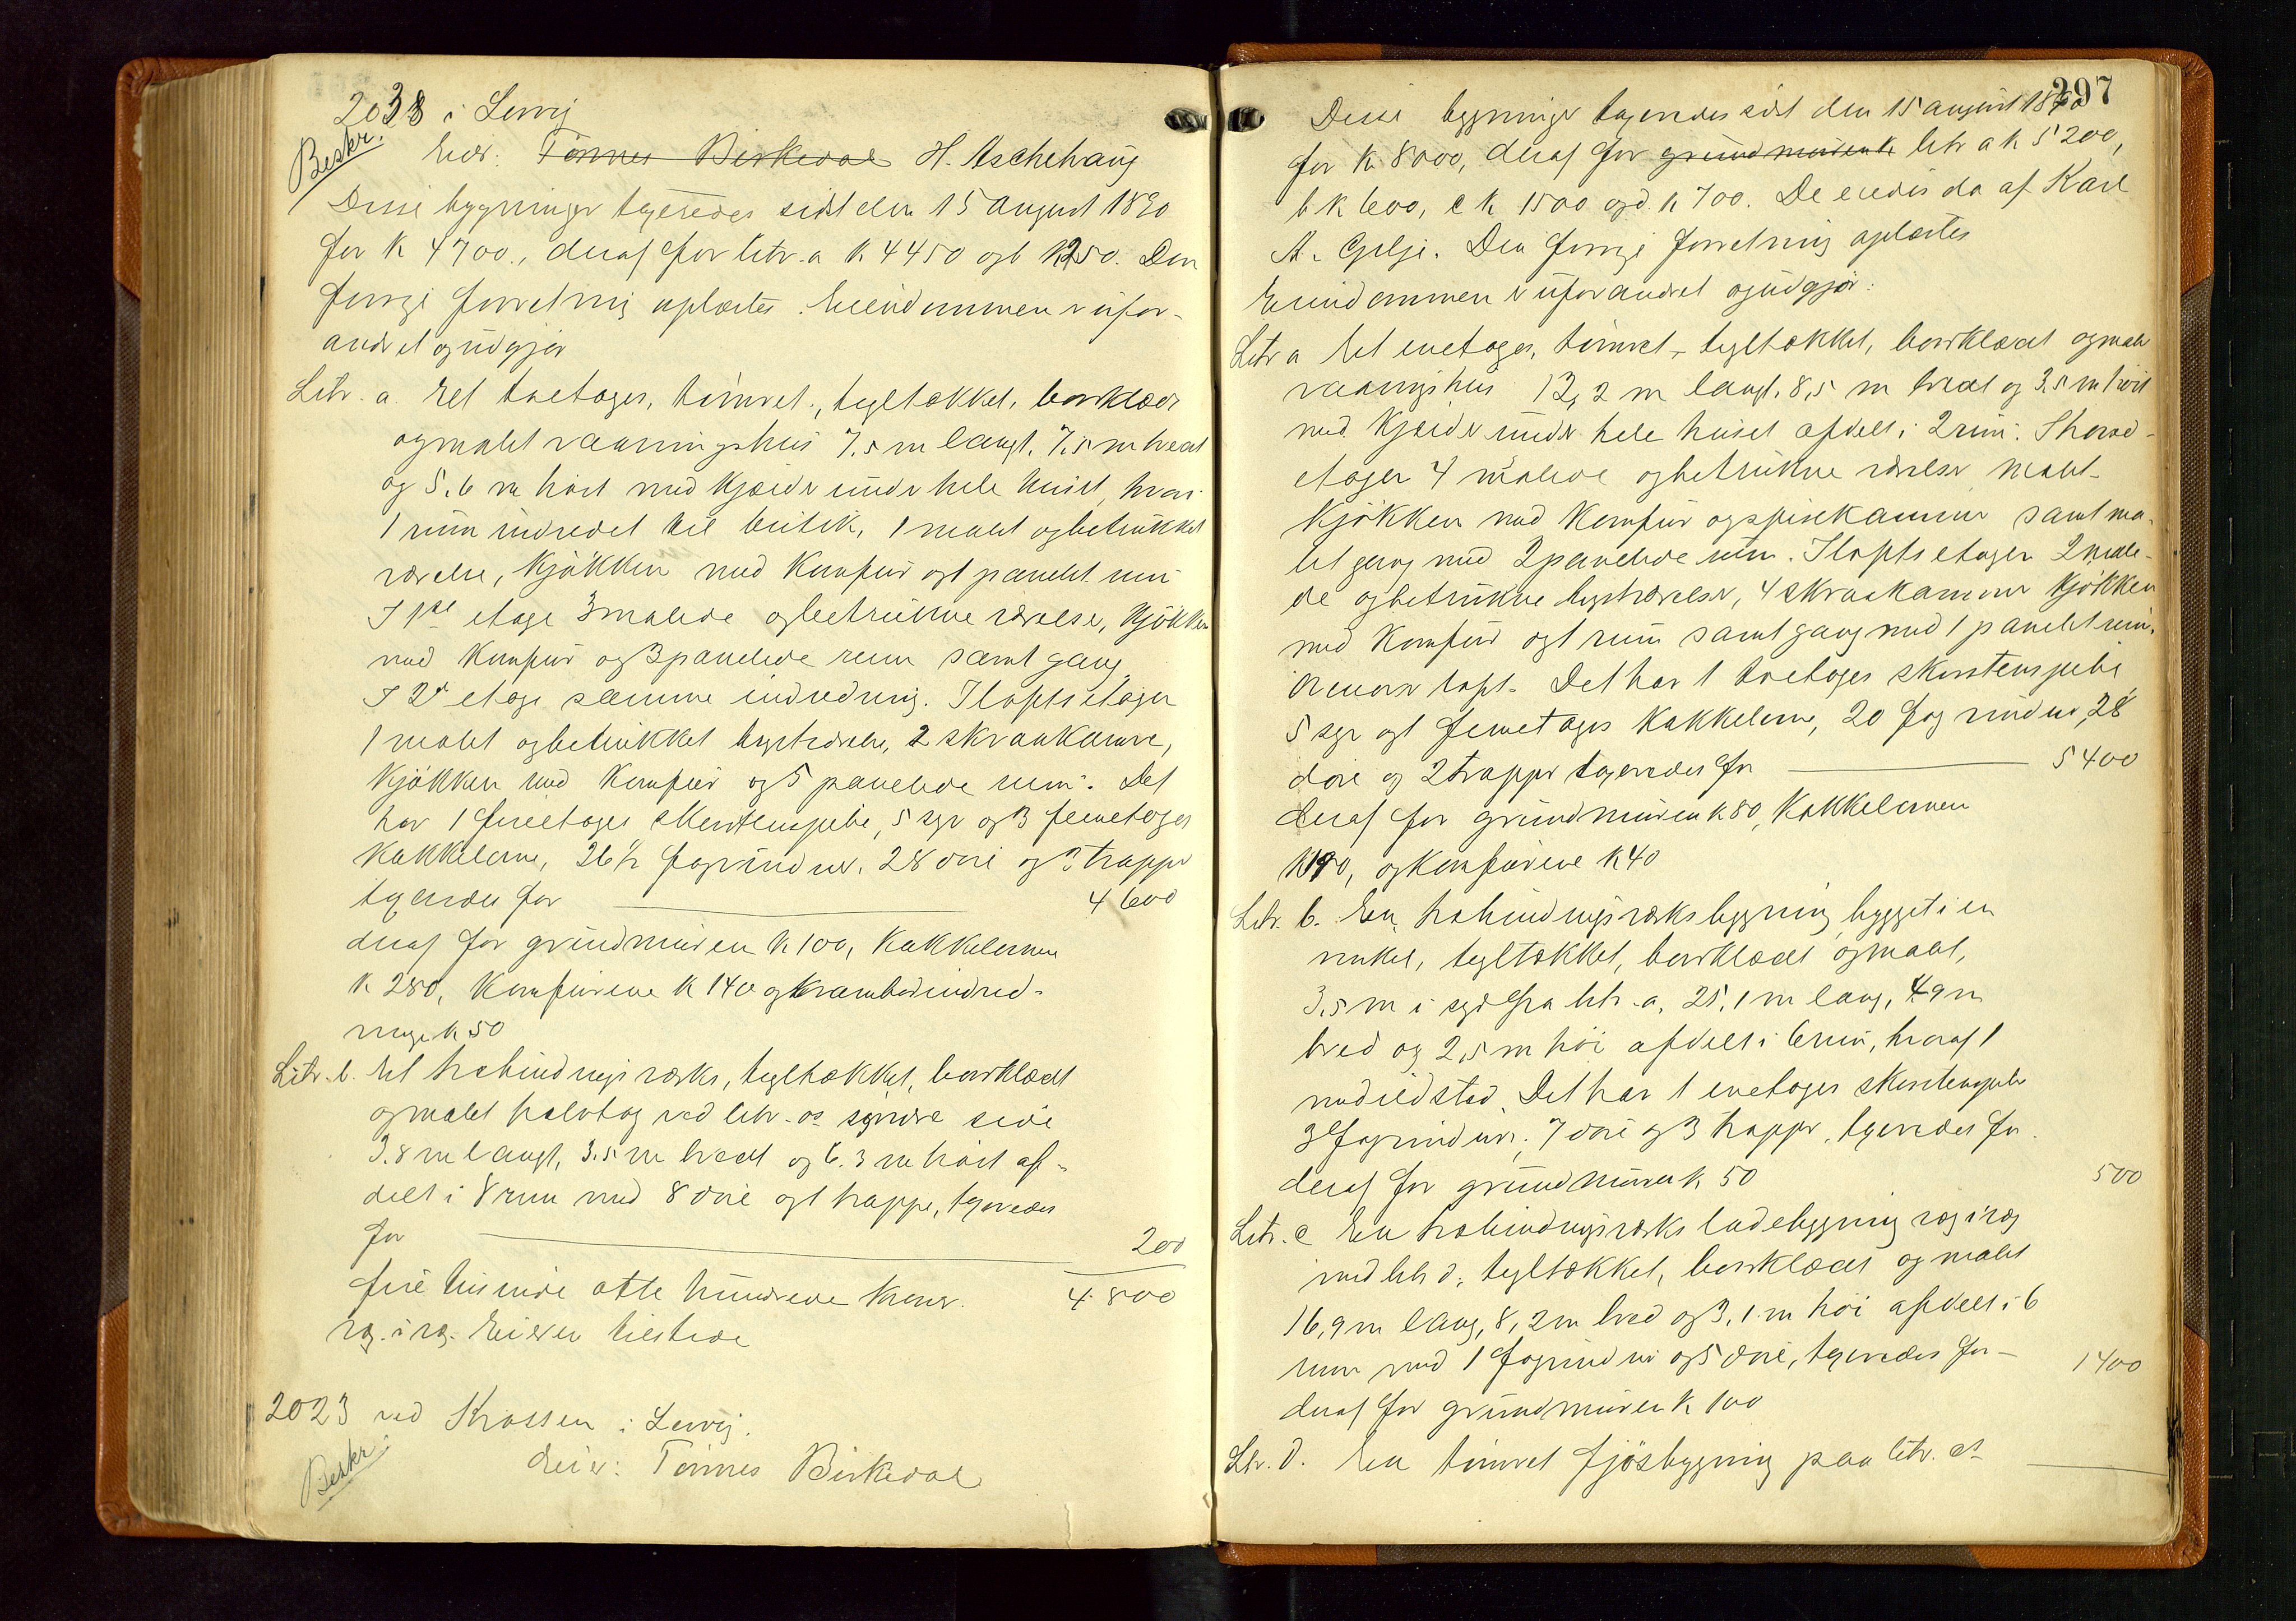 2038 i Lervig
Beskr.
Eier: Tönnes Birkedal H. Aschehaug
Disse bygninger taxeredes sidst den 15 august 1890
for K 4700., deraf for litr. a K 4450 og b K 250. Den
forrige forretning oplæstes. Eiendommen er ufor-
andret og udgjør
Litr. a. Et toetages, tømret, tegltækket, bordklædt
og malet vaaningshus 7,5 m langt, 7,5 m bredt
og 5,6 m høit med kjælder under hele huset, hvori
1 rum indredet til butik, 1 malet og betrukket
værelse, kjøkken med komfur og 1 panelet rum
I 1ste etage 3 malede og betrukne værelser, kjøkken
med komfur og 3 panelede rum samt gang
I 2d etage samme indredning. I loftsetagen
1 malet og betrukket kvistværelse, 2 skraakamre,
kjøkken med komfur og 5 panelede rum. Det
har 1 fireetages skorstenspibe, 5 og 3 femetages
kakkelovne, 26 1/2 fag vinduer, 28 døre og trapper
taxeredes for 4600
deraf for grundmuren K 100, kakkelovnene
K 280, komfurene K 140 og krambodindred-
ninge K 50
Litr. b. Et træbindingsværks, tegltækket, bordklædt
og malet halvtag ved litr. as søndre side
3.8 m langt, 3.5 m bredt og 6.3 m høit af-
delt i 8 rum med 8 døre og 1 trappe, taxeredes
for 200
fire tusinde otte hundrede kroner. 4800
Eieren tilstede
2023 ved Krossen i Lervig.
Beskr.
Eier: Tönnes Birkedal
297
Disse bygninger taxeredes sidst den 15 august 1890
for K 8000, deraf for grundmuren K litr a K 5200,
b K 600, c K 1500 og d. K 700. De eiedes da af Karl
A. Gilje. Den forrige forretning oplæstes
Eiendommen er uforandret og udgjør:
Litr a Et enetages, tømret, tegltækket, bordklædt og malet
vaaningshus 13,2 m langt, 8,5 m bredt og 3,5 m høit
med kjælder under hele huset afdelt i 2 rum. I hoved-
etagen 4 malede og betrukne værelser, malet
kjøkken med komfur og spisekammer samt ma-
let gang med 2 panelede rum. I loftsetagen 2 male-
de og betrukne kvistværelser, 4 skraakammer kjøkken
med komfur og 1 rum samt gang med 1 panelet rum,
loft. Det har 1 toetages skorstenspibe
5 og 1 femetages kakkelovne, 20 fag vinduer, 28
døre og 2 trapper taxeredes for 5400
deraf for grundmuren K 80, kakkelovnene
K 190, og komfurene K 40
Litr. b. En træbindingsværksbygning bygget i en
vinkel, tegltækket, bordklædt og malet,
3,5 m i syd fra litr. a, 25,1 m lang, 4,9 m
bred og 2,5 m høi afdelt i 6 rum, hvoraf 1
med ildsted. Det har 1 enetages skorstenspibe
3 fag vinduer, 7 døre og 3 trapper, taxeredes for
deraf for grundmuren K 50 500
Litr. c En træbindingsværks ladebygning væg i væg
med litr d, tegltækket, bordklædt og malet
16,9 m lang, 8,2 m bred og 3,1 m høi afdelt i 6
rum med 1 fag vinduer og 5 døre, taxeredes for 1400
deraf for grundmuren K 100
Litr. d. En tømret fjøsbygning paa litr. cs